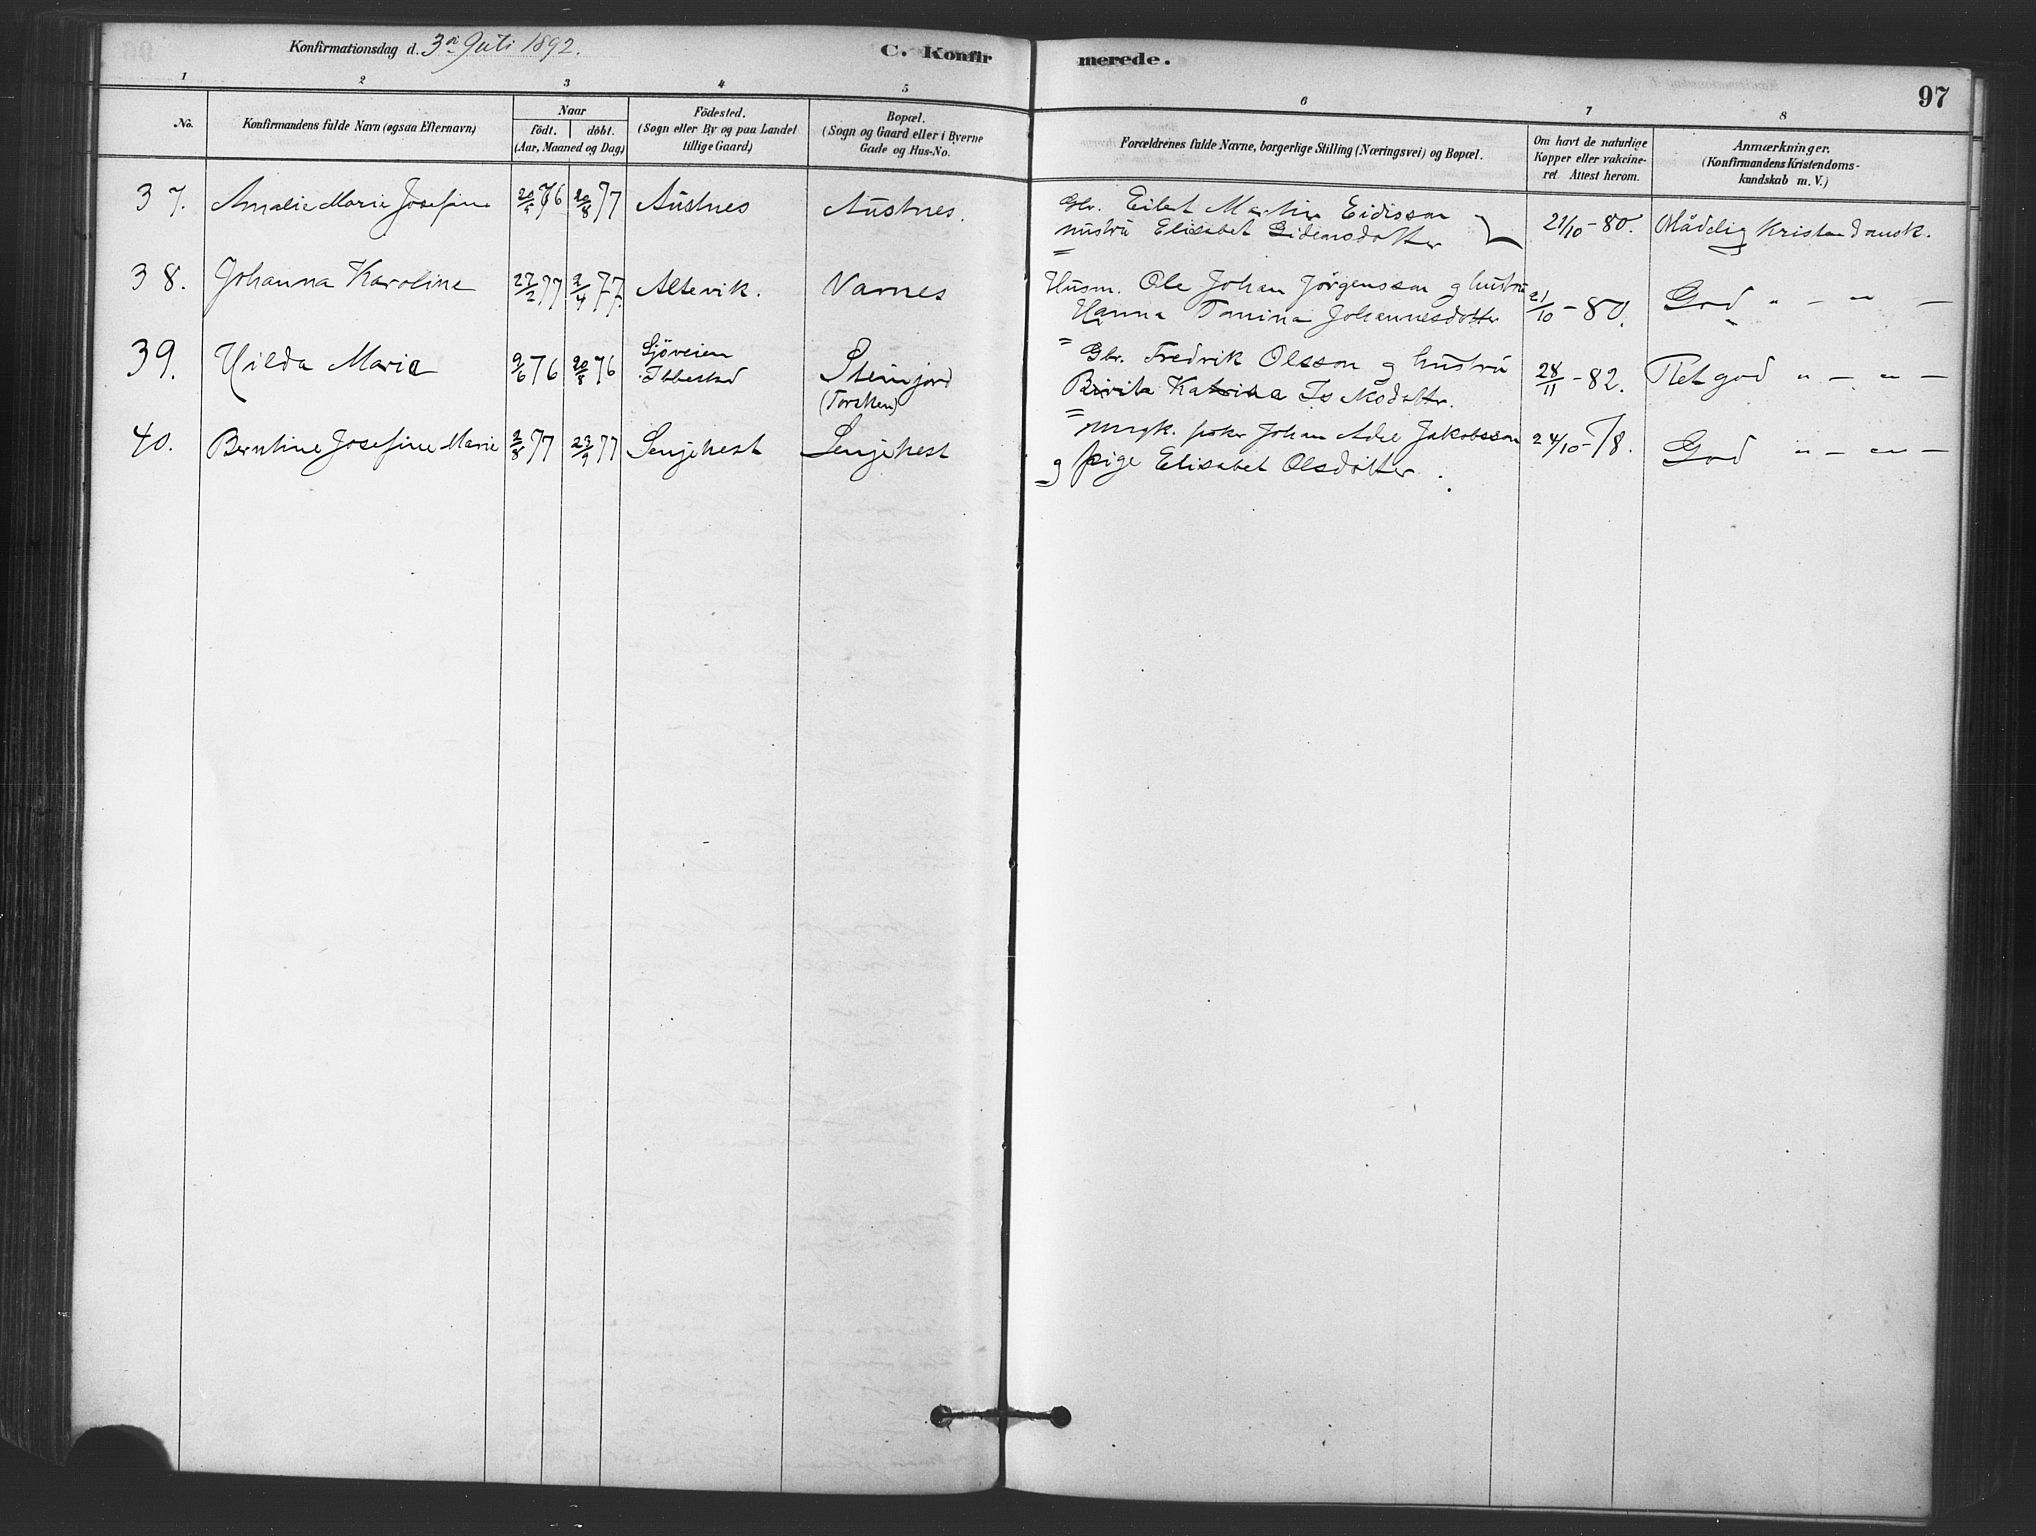 Konfirmationsdag d. 3die Juli 1892. C. Konfirmerede. 97
1 2 3 4 5 6 7 8
No. Konfirmandens fulde Navn (ogsaa Efternavn) Naar Födt. döbt. (Aar, Maaned og Dag) Födested. (Sogn eller By og paa Landet tillige Gaard) Bopæl. (Sogn og Gaard eller i Byerne Gade og Hus-No. Forældrenes fulde Navne, borgerlige Stilling (Næringsvei) og Bopæl. Om havt de naturlige Kopper eller vakcineret Attest herom. Anmærkninger. (Konfirmandens Kristendomskundskab m. V.)
37. Amalie Marie Josefine 76 20/8 77 Austnes Austnes. Gbr. Eilet Martin Eidisson
hustru Elisabet Eidensdotter 21/10-80. Mådelig Kristendomsk.
38. Johanna Karoline 27/2 77 2/4 77. Altevik. Varnes Husm. Ole Johan Jørgensson g hustru
Hanna Tomina Johannesdotter 21/10-80. God " - " -
39. Hilda Maria 9/6 76 20/8 76 Sjöveien
Ibbestad Steinfjord
(Torsken) Gbr. Fredrik Olsson g hustru
Birita Katrina 28/11-82. Ret god " - " -
40. Berntine Josefine Marie 2/8 77 23/9 77 Senjehest Senjehest Ungk. fisker Johan Adel Jakobsson
g pige Elisabet Olsdotter. 24/10-78. God " - " -